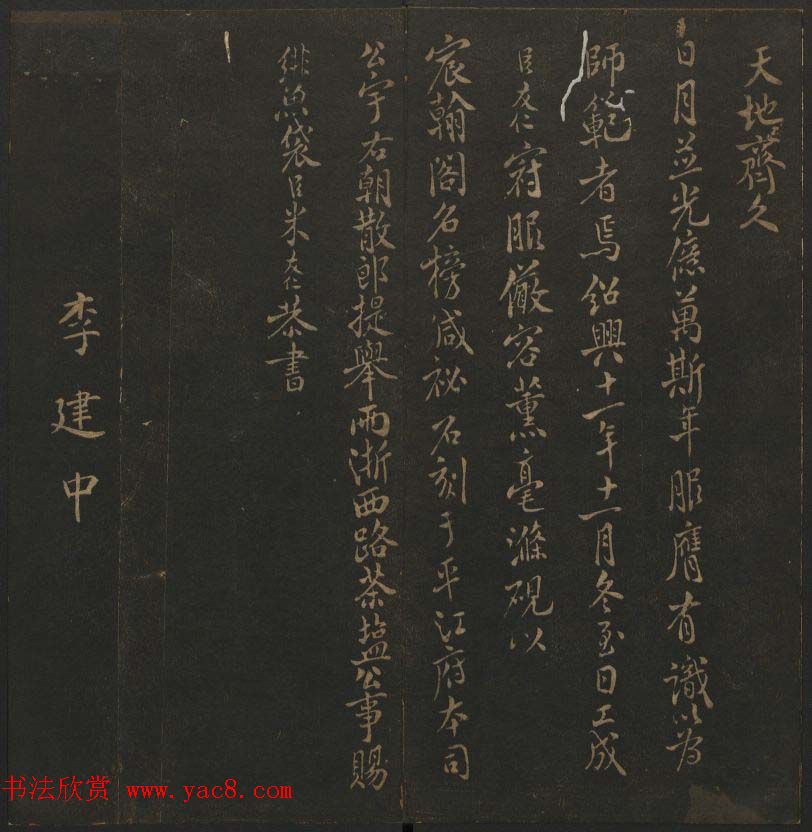 天地齊久
日月並光億萬斯年服膺有識以為
師範者焉紹興十一年十一月冬至日工成
臣友仁竊服儼容薰毫滌硯以
宸翰閣名榜咸祕石刻于平江府本司
公宇右朝散郎提舉兩浙西路茶塩公事賜
緋魚袋臣米友仁恭書
李建中
书法欣赏 www.yac8.com